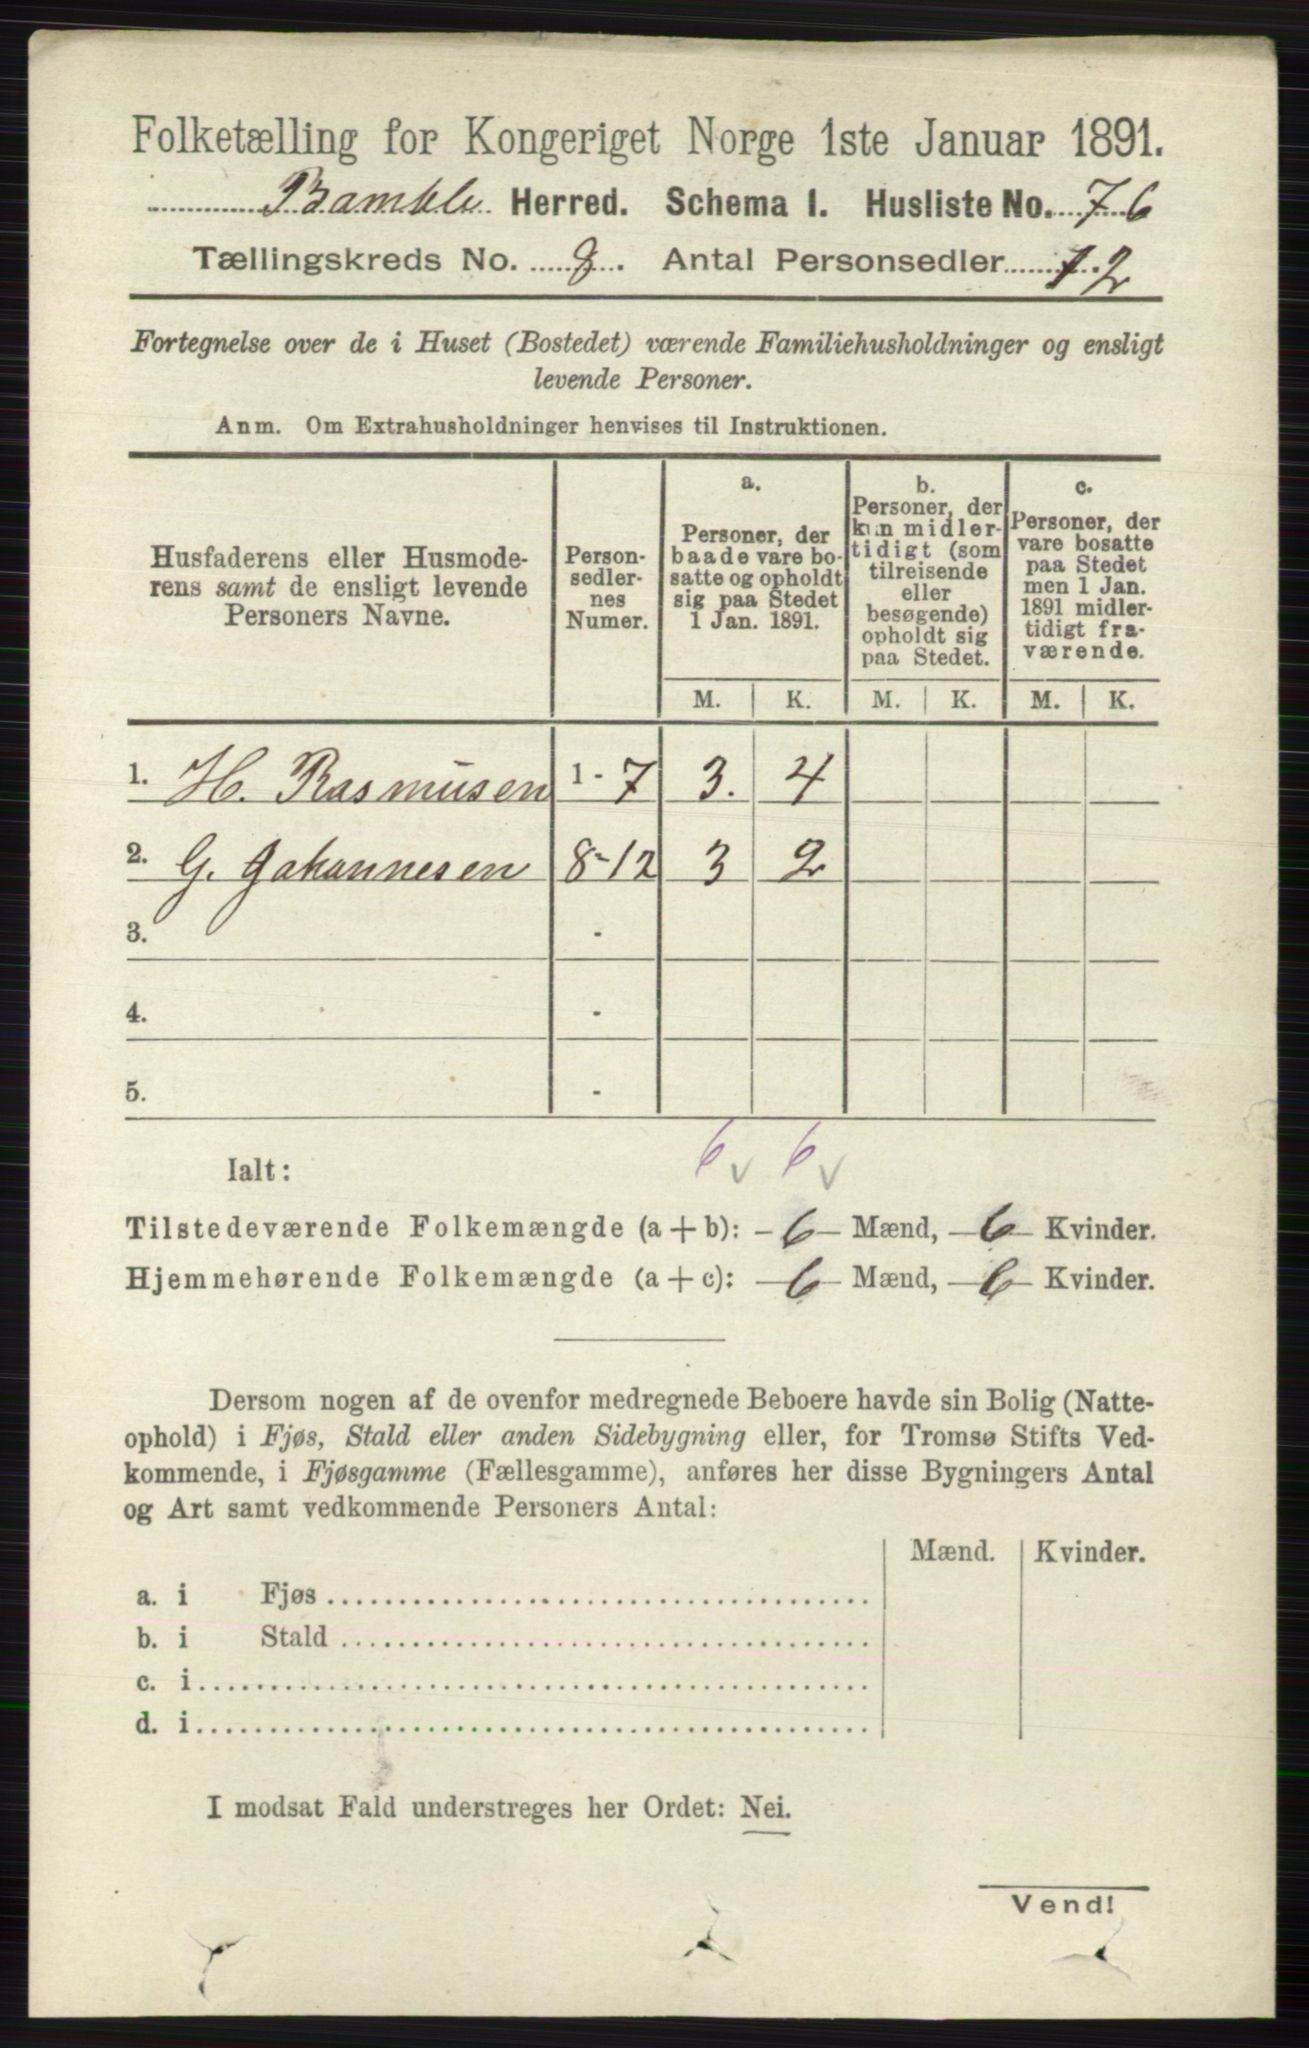 Folketælling for Kongeriget Norge 1ste Januar 1891.
Bamble Herred. Schema I. Husliste No. 76
Tællingskreds No. 8. Antal Personsedler 12
Fortegnelse over de i Huset (Bostedet) værende Familiehusholdninger og ensligt
levende Personer.
Anm. Om Extrahusholdninger henvises til Instruktionen.
Husfaderens eller Husmode-
rens samt de ensligt levende
Personers Navne.
Person-
sedler-
nes
Numer.
a.
Personer, der
baade vare bo-
satte og opholdt
sig paa Stedet
1 Jan. 1891.
b.
Personer, der
kun midler-
tidigt (som
tilreisende
eller
besøgende)
opholdt sig
paa Stedet.
c.
Personer, der
vare bosatte
paa Stedet
men 1 Jan.
1891 midler-
tidigt fra-
værende.
M. K. M. K. M. K.
1. H. Rasmusen 1 - 7 3. 4
2. G. Johannesen 8-12 3 2
3. -
4. -
5. -
6 v 6 v
Ialt:
Tilstedeværende Folkemængde (a + b): 6 Mænd, 6 Kvinder.
Hjemmehørende Folkemængde (a + c): 6 Mænd, 6 Kvinder.
Dersom nogen af de ovenfor medregnede Beboere havde sin Bolig (Natte-
ophold) i Fjøs, Stald eller anden Sidebygning eller, for Tromsø Stifts Ved-
kommende, i Fjøsgamme (Fællesgamme), anføres her disse Bygningers Antal
og Art samt vedkommende Personers Antal:
Mænd. Kvinder.
a. i Fjøs
b. i Stald
c. i
d. i
I modsat Fald understreges her Ordet: Nei.
Vend!